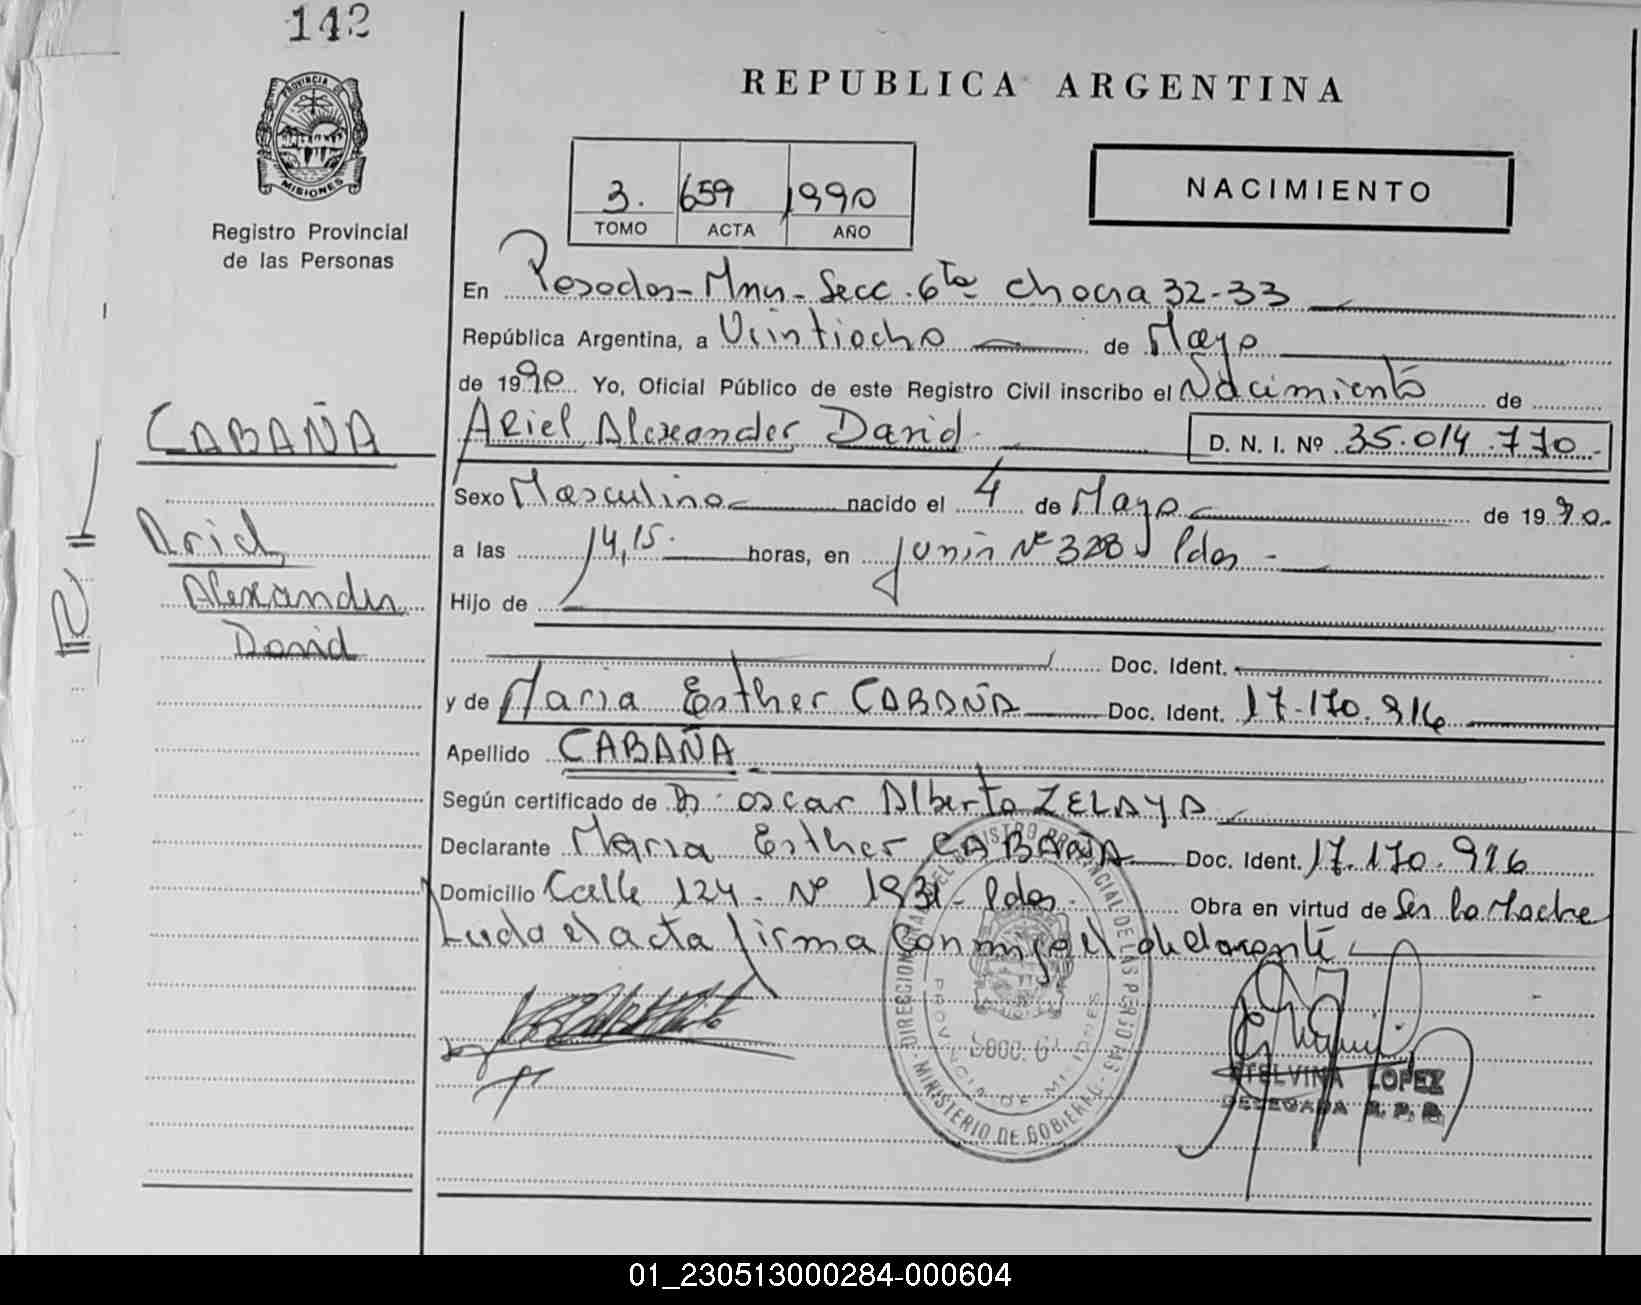 142
PROVINCIA DE
MISIONES
Registro Provincial
de las Personas
REPUBLICA ARGENTINA
3. 659 1990
TOMO ACTA AÑO
NACIMIENTO
En Posadas - Mnes - Secc. 6ta chacra 32-33
República Argentina, a Veintiocho de Mayo
de 1990 Yo, Oficial Público de este Registro Civil inscribo el Nacimiento de
Ariel Alexander David D. N. I. Nº 35.014.770.-
CABAÑA
Ariel
Alexander
David
Sexo Masculino nacido el 4 de Mayo de 1990.
a las 14,15. horas, en Junín Nº 328 Pdas -
Hijo de
Doc. Ident.
y de Maria Esther CABAÑA Doc. Ident. 17.170.916
Apellido CABAÑA
Según certificado de Dr. Oscar Alberto ZELAYA
Declarante Maria Esther CABAÑA Doc. Ident. 17.170.916
Domicilio Calle 124 - Nº 1931 - Pdas. Obra en virtud de Ser la Madre
Leida el acta firma conmigo el declarante
DIRECCION GRAL DEL REGISTRO PROVINCIAL DE LAS PERSONAS
MINISTERIO DE GOBIERNO
PROVINCIA DE MISIONES
SECC. 6ª
ETELVINA LOPEZ
DELEGADA R. P. P.
01_230513000284-000604